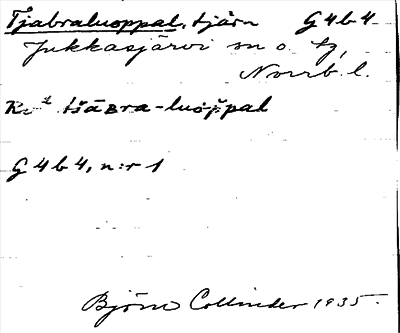 Tjabraluoppal, tjärn G4b4
Jukkasjärvi sn o. tg,
Norrb. l.
tšāʙra-luoppal
G4b4, n:r 1
Björn Collinder 1935.